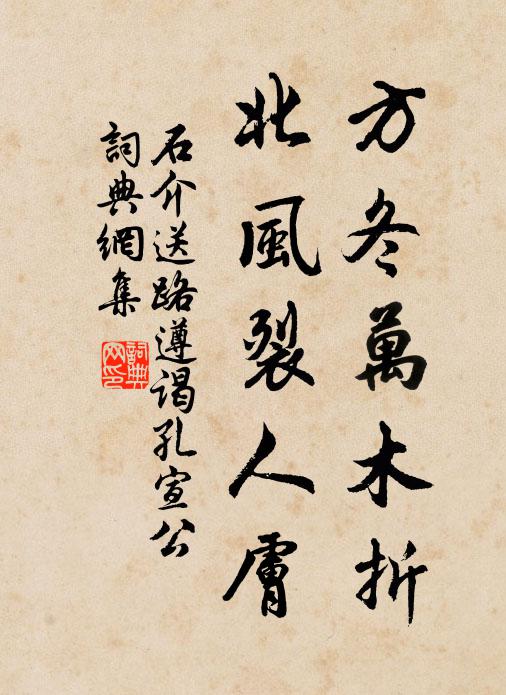 方冬萬木折
北風裂人膚
石介送路遵谒孔宣公
詞典網集
詞典
网印